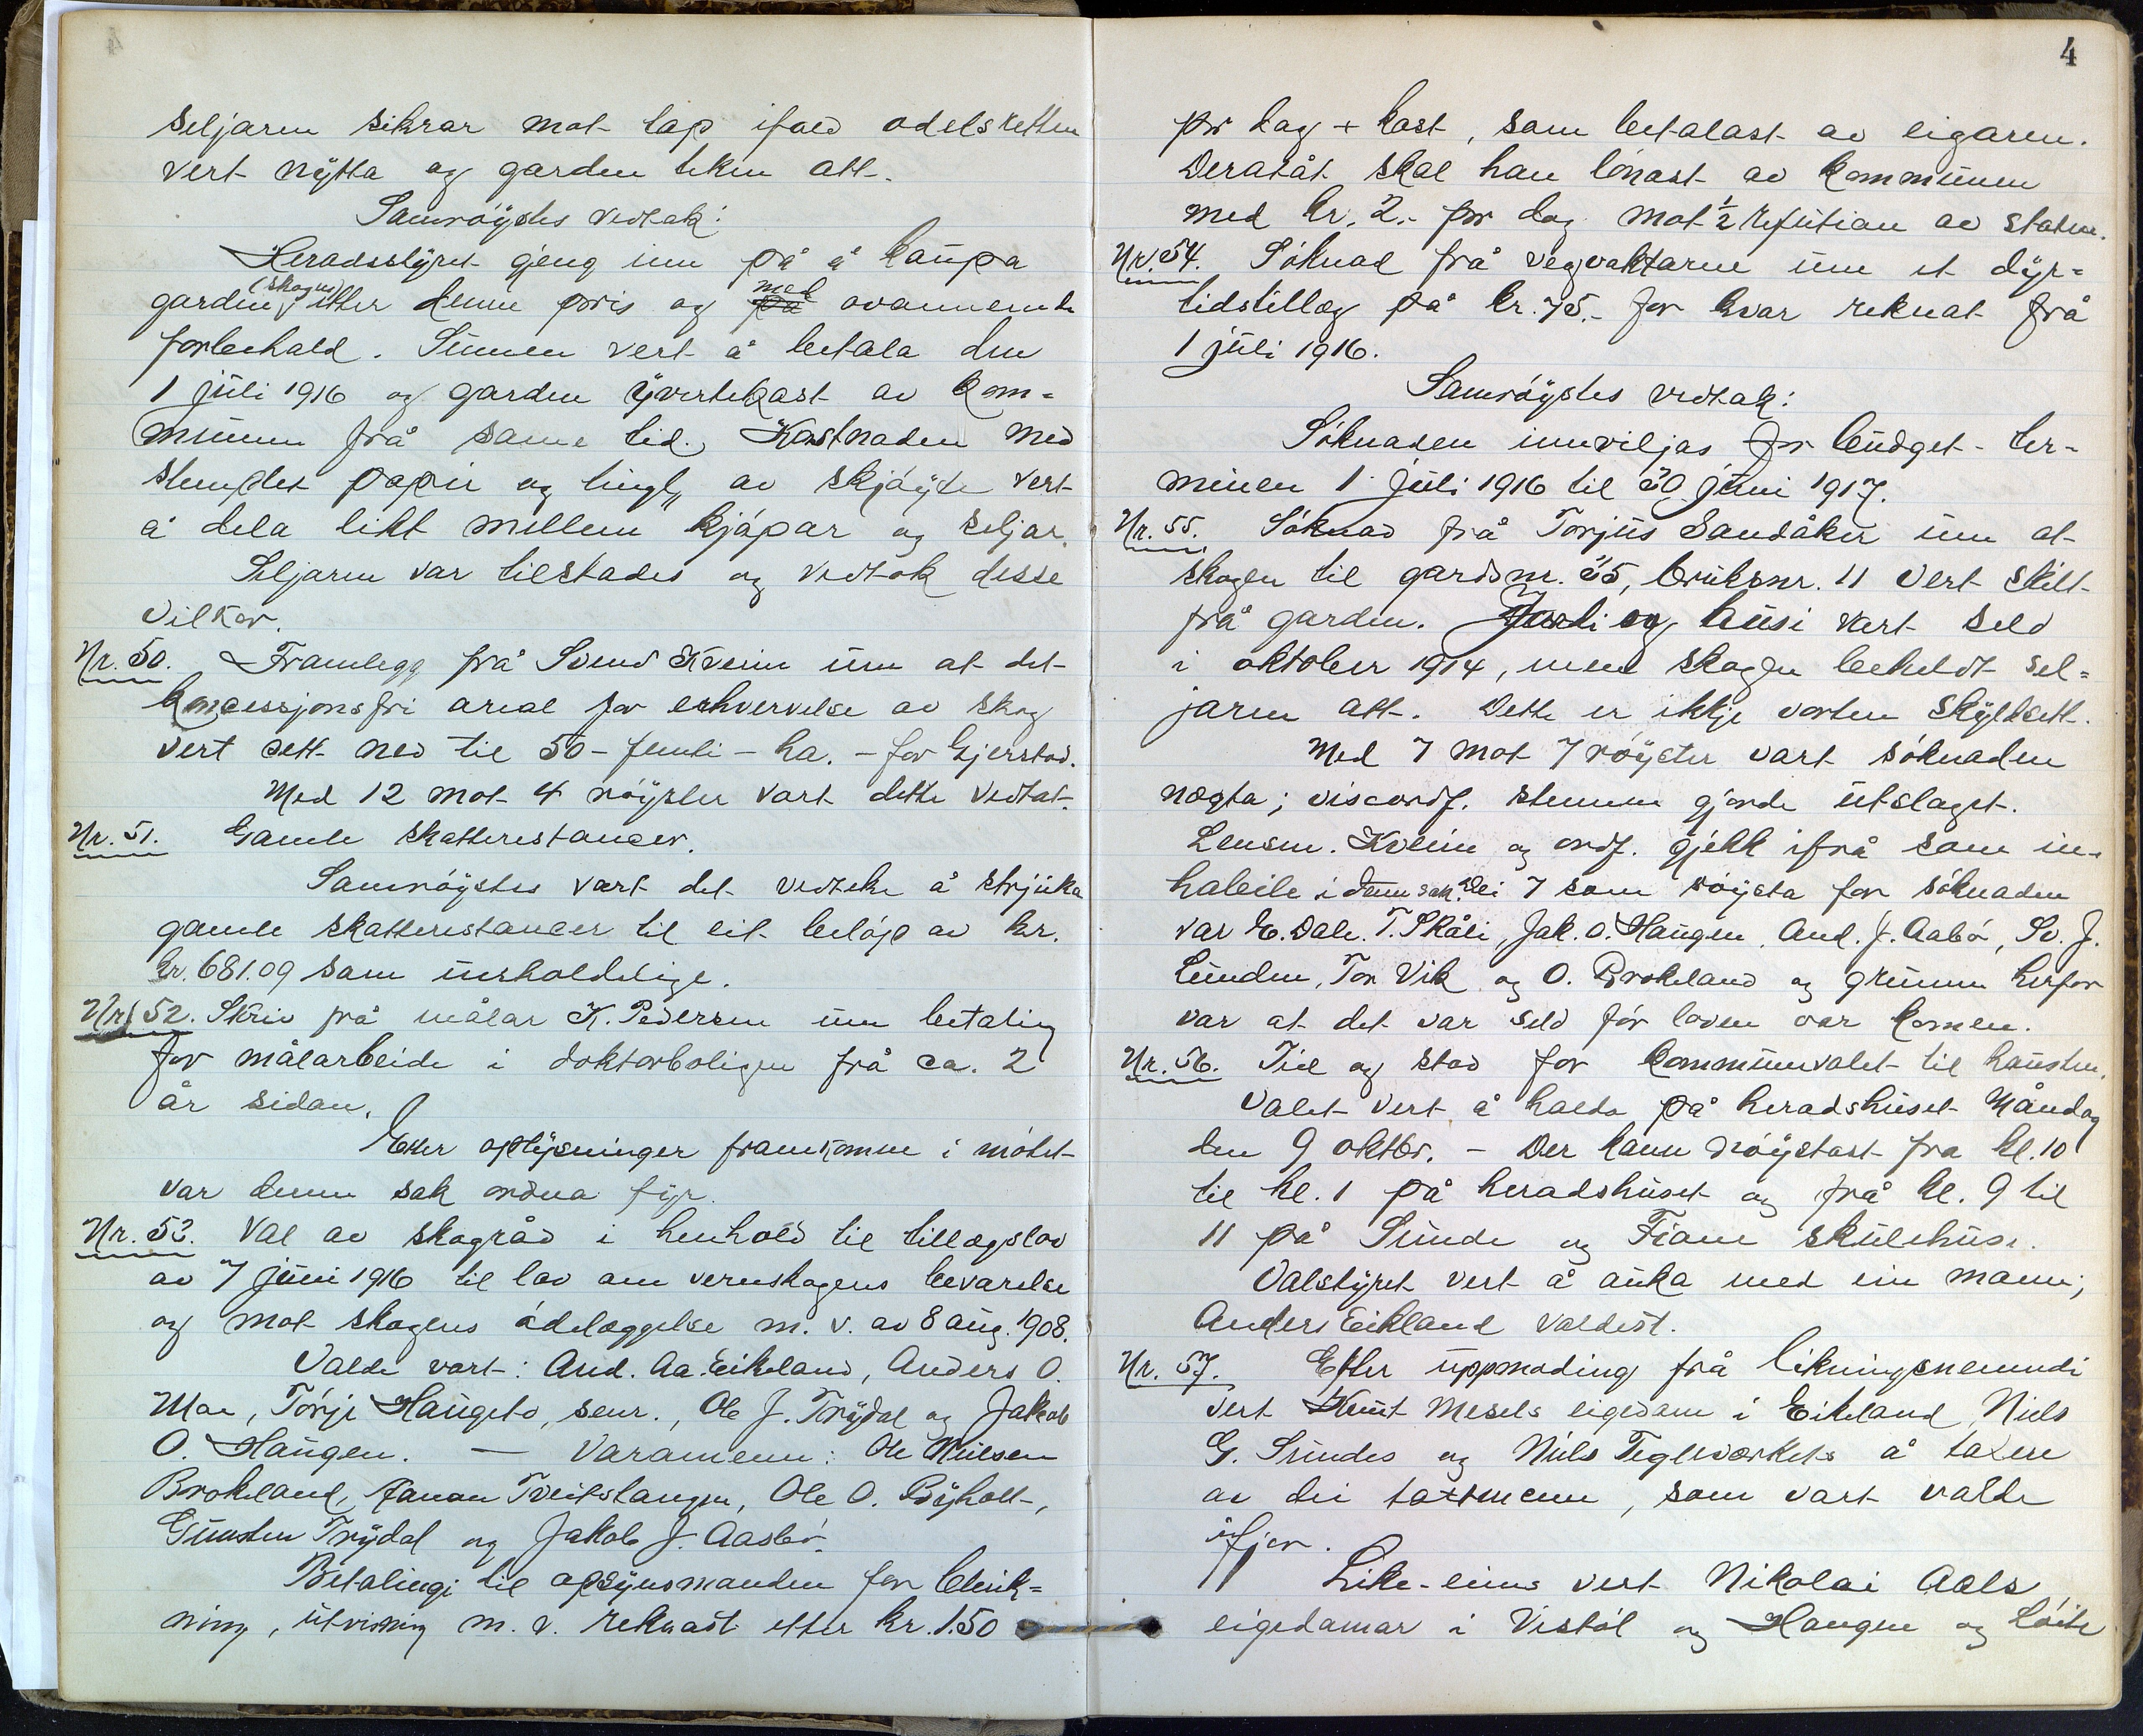 seljaren sikrar mot tap ifald odelsretten
vert nytta og garden teken att.
Samrøystes vedtak:
Heradsstyret gjeng inn på å kaupa
garden (skogen) etter denne pris og med ovannemnde
forbehald. Summen vert å betala den
1 juli 1916 og garden yvertekast av kom=
munen frå same tid. Kostnaden med
stemplet papir og tingl. av skjøyte vert
å dela likt millom kjøpar og seljar.
Seljaren var tilstades og vedtok desse
vilkor.
Nr. 50. Framlegg frå Svend Kveim um at det
koncessjonsfri areal for erhvervelse av skog
vert sett ned til 50 - femti - ha. - for Gjerstad.
Med 12 mot 4 røyster vart dette vedtat.
Nr. 51. Gamle skatterestancer.
Samrøystes vart det vedteke å strjuka
gamle skatterestancer til eit beløp av kr.
kr. 681.09 som uerholdelige.
Nr. 52. Skriv frå målar K. Pedersen um betaling
for målarbeide i doktorboligen frå ca. 2
år sidan.
Etter oplysninger framkomne i møtet
var denne sak ordna fyr.
Nr. 53. Val av skogråd i henhold til tillægslov
av 7 juni 1916 til lov om vernskogens bevarelse
og mot skogens ødelæggelse m. v. av 8 aug. 1908.
Valde vart: And. Aa. Eikeland, Anders O.
Moe, Tørje Haugeto, senr., Ole J. Trydal og Jakob
O. Haugen. — Varamenn: Ole Nilsen
Brokeland, Tveitslangen, Ole O. Røyholt,
Gunsten Trydal og Jakob J. Aasbø.
Betalingi til opsynsmanden for blink=
ning, utvisning m. v. reknast etter kr. 1.50
4
pr dag + kost, som betalast av eigaren.
Deratåt skal han lønast av kommunen
med kr. 2.- pr dag mot ½ refution av staten.
Nr. 54. Søknad frå vegvaktarne um et dyr=
tidstillæg på kr. 75.- for kvar reknat frå
1 juli 1916.
Samrøystes vedtak:
Søknaden innviljas for budget-ter-
minen 1 juli 1916 til 30 juni 1917.
Nr. 55. Søknad frå Torjus Sandåker um at
skogen til gardsnr. 35, bruksnr. 11 vert skilt
frå garden. Jordi og husi vart seld
i oktober 1914, men skogen beheldt sel=
jaren att. Dette er ikkje vorten skyldsett.
Med 7 mot 7 røyster vart søknaden
nægta; viceordf. stemme gjorde utslaget.
Lensm. Kveim og ordf. gjekk ifrå som in-
habile i denne sak. Dei 7 som røysta for søknaden
var E. Dale. T. Skåli, Jak. O. Haugen, And. J. Aabø, Sv. J.
Lunden, Tor Vik og O. Brokeland og grunnen herfor
var at det var seld før loven var komen.
Nr. 56. Tid og stad for kommunevalet til hausten.
Valet vert å halda på heradshuset Måndag
den 9 oktbr. - Der kann røystast fra kl. 10
til kl. 1 på heradshuset og frå kl. 9 til
11 på Sunde og Fiane skulehus.
Valstyret vert å auka med ein mann;
Anders Eikland valdest.
Nr. 57. Etter uppmoding frå likningsnemndi
vert Knut Mesels eigedom i Eikeland, Niels
G. Sundes og Niels Teglverkets å taxere
av dei taxtmenn, som vart valde
ifjor.
Like-eins vert Nikolai Aals
eigedomar i Vestøl og Haugen og Løite